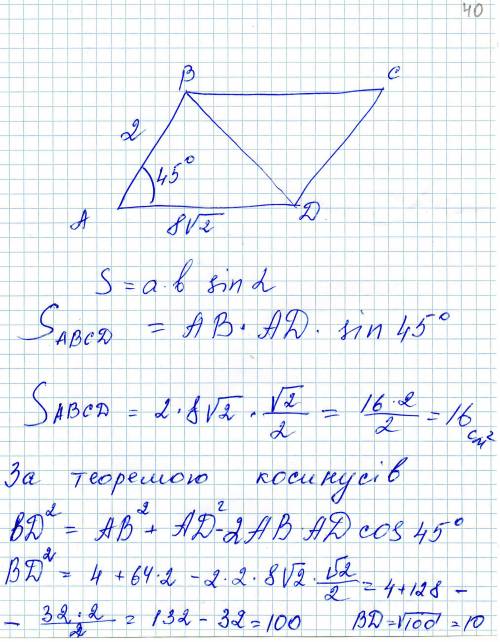 40
B C
2
45°
A D
8√2
S = a·b sin α
S_ABCD = AB · AD · sin 45°
S_ABCD = 2 · 8√2 · √2/2 = 16·2/2 = 16 см²
За теоремою косинусів
BD² = AB² + AD² - 2AB·AD cos 45°
BD² = 4 + 64·2 - 2·2·8√2·√2/2 = 4 + 128 -
- 32·2/2 = 132 - 32 = 100 BD = √100 = 10